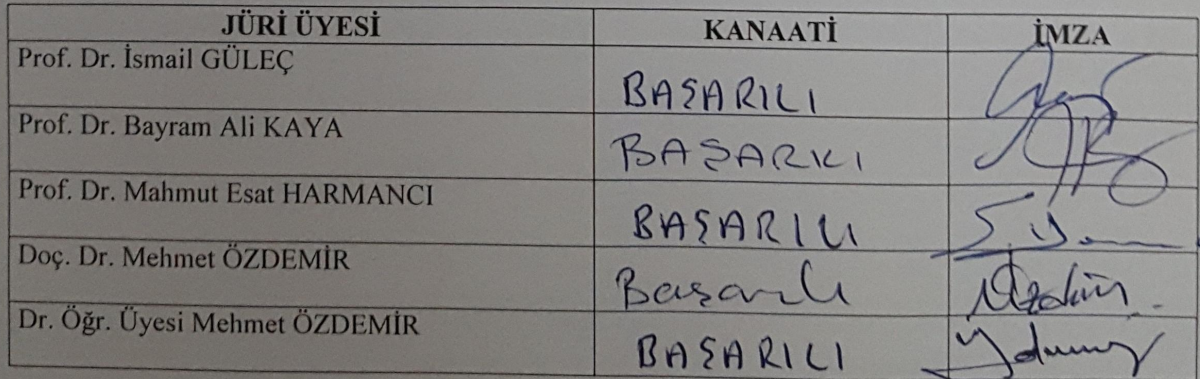 JÜRİ ÜYESİ KANAATİ İMZA
Prof. Dr. İsmail GÜLEÇ BAŞARILI
Prof. Dr. Bayram Ali KAYA BAŞARILI
Prof. Dr. Mahmut Esat HARMANCI BAŞARILI
Doç. Dr. Mehmet ÖZDEMİR Başarılı
Dr. Öğr. Üyesi Mehmet ÖZDEMİR BAŞARILI